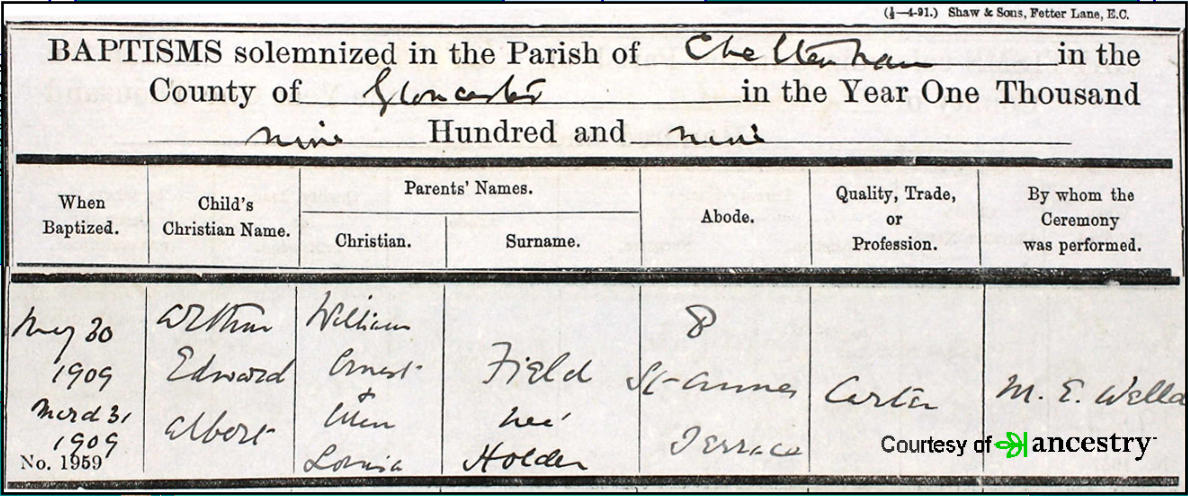 (½—4-91.) Shaw & Sons, Fetter Lane, E.C.
BAPTISMS solemnized in the Parish of Cheltenham in the
County of Gloucester in the Year One Thousand
nine Hundred and nine
When Baptized.
Child's Christian Name.
Parents' Names.
Christian.
Surname.
Abode.
Quality, Trade, or Profession.
By whom the Ceremony was performed.
May 30
1909
1909
No. 1959
Arthur
Edward
Albert
William
Ernest
+
Ellen
Louisa
Field
neé
Holder
8
St. Annes
Terrace
Carter
M. E. Wella
Courtesy of ancestry